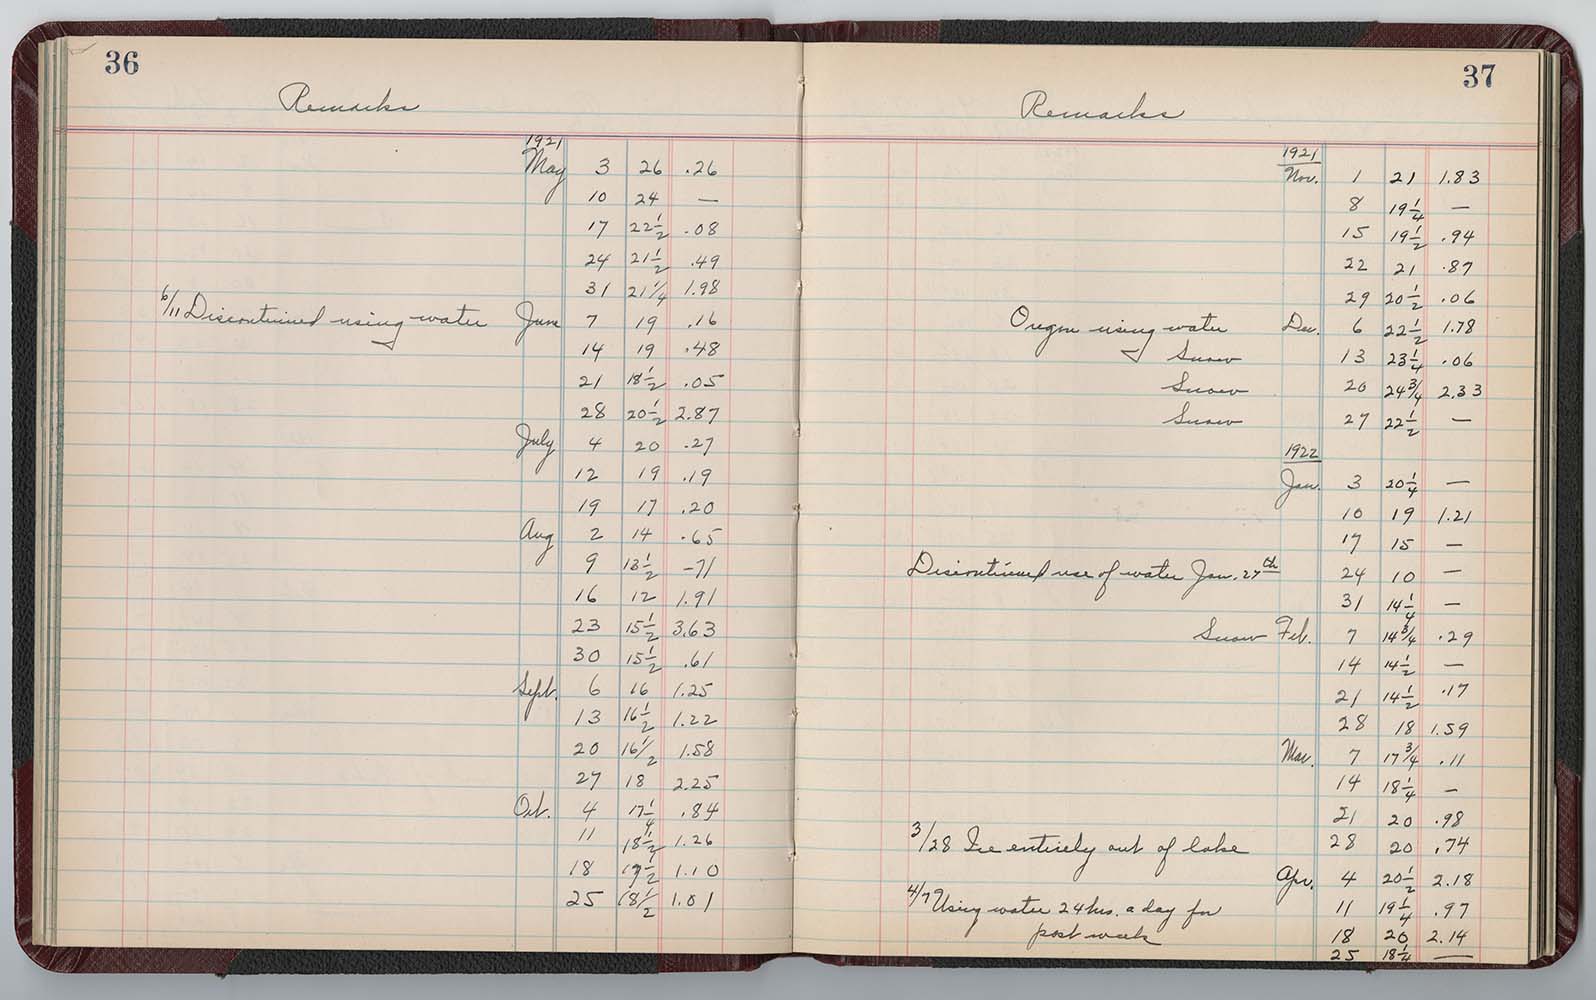 36
Remarks
1921
May 3 26 .26
10 24 —
17 22 1/2 .08
24 21 1/2 .49
31 21 1/4 1.98
6/11 Discontinued using water June 7 19 .16
14 19 .48
21 18 1/2 .05
28 20 1/2 2.87
July 4 20 .27
12 19 .19
19 17 .20
Aug 2 14 .65
9 13 1/2 -71
16 12 1.91
23 15 1/2 3.63
30 15 1/2 .61
Sept. 6 16 1.25
13 16 1/2 1.22
20 16 1/2 1.58
27 18 2.25
Oct. 4 17 1/4 .84
11 18 1/2 1.26
18 17 1/2 1.10
25 18 1/2 1.01
37
Remarks
1921
Nov. 1 21 1.83
8 19 1/4 —
15 19 1/2 .94
22 21 .87
29 20 1/2 .06
Oregon using water Dec. 6 22 1/2 1.78
Snow 13 23 1/4 .06
Snow 20 24 3/4 2.33
Snow 27 22 1/2 —
1922
Jan. 3 20 1/4 —
10 19 1.21
17 15 —
Discontinued use of water Jan. 27th 24 10 —
31 14 1/4 —
Snow Feb. 7 14 3/4 .29
14 14 1/2 —
21 14 1/2 .17
28 18 1.59
Mar. 7 17 3/4 .11
14 18 1/4 —
21 20 .98
3/28 Ice entirely out of lake 28 20 .74
Apr. 4 20 1/2 2.18
4/7 Using water 24 hrs. a day for 11 19 1/4 .97
past week 18 20 2.14
25 18 1/4 —